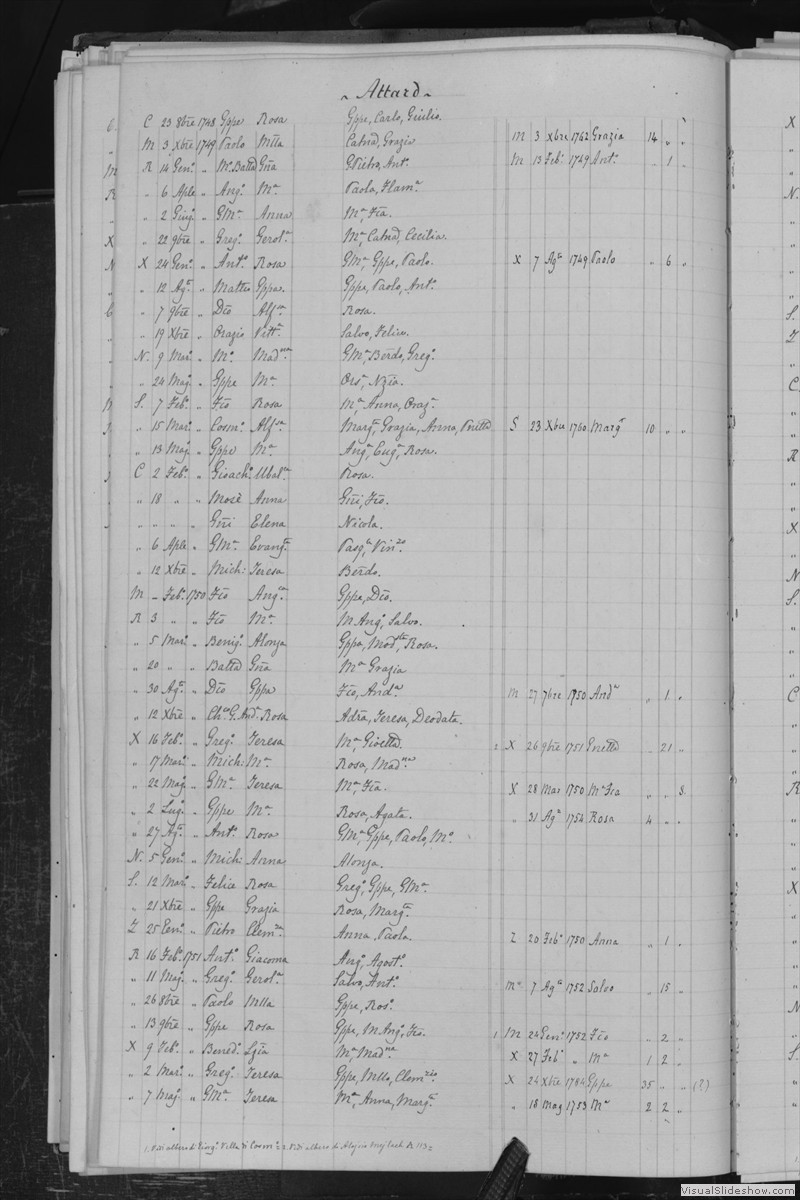 ~ Attard ~
C 23 8bre 1748 Gppe Rosa Gppe, Carlo, Giulio.
„ M 3 Xbre 1749 Paolo Mlla Catnd, Grazio M 3 Xbre 1762 Grazia 14 „ „
M R 14 Gen.o „ M.o Battd Gña GPietro, Ant.a M 13 Feb.o 1749 Ant.a „ 1 „
R „ 6 Aple „ Ang.o M.a Paola, Flam.a
„ „ 2 Giug.o „ GM.a Anna M.a, Fca.
X „ 22 9bre „ Greg.o Gerol.a M.a, Catnd, Cecilia.
N X 24 Gen.o „ Ant.o Rosa GM.a, Gppe, Paolo. X 7 Ag.o 1749 Paolo „ 6 „
„ „ 12 Ag.o „ Matteo Gppa. Gppe, Paolo, Ant.o
„ 7 9bre „ Dco Alf.na Rosa.
„ „ 19 Xbre „ Orazio Vitt.a Salvo, Felice.
„ N. 9 Mar.o „ M.o Mad.na GM.a Berdo, Greg.o
„ 24 Mag.o „ Gppe M.a Ors.a, Nzia.
S. 7 Feb.o „ Fco Rosa M.a, Anna, Oraz.o
„ 15 Mar.o „ Cosm.o Alf.na Marg.ta, Grazia, Anna, Pnetta S 23 Xbre 1760 Marg.ta 10 „ „
„ 13 Mag.o „ Gppe M.a Ang.a, Eug.a, Rosa.
C 2 Feb.o „ Gioach.o Ubal.a Rosa.
„ 18 „ „ Mosè Anna Gñi, Fco.
„ „ „ „ Gñi Elena Nicola.
„ 6 Aple „ GM.a Evang.ta Pasq.le, Vin.zo
„ 12 Xbre „ Mich: Teresa Berdo.
M – Feb.o 1750 Fco Ang.ca Gppe, Dco.
R 3 „ „ Fco M.a M Ang.o, Salvo.
„ 5 Mar.o „ Benig.o Alonza Gppa, Mod.ta, Rosa.
„ 20 „ „ Battd Gña M.a Grazia
„ 30 Ag.o „ Dco Gppa Fco, And.a M 27 7bre 1750 And.a „ 1 „
„ 12 Xbre „ Ch.co G. And.a Rosa Adra, Teresa, Deodata.
X 16 Feb.o „ Greg.o Teresa M.a, Gioetta. 2 X 26 9bre 1751 „ 21 „
„ 17 Mar.o „ Mich: M.a Rosa, Mad.na
„ 22 Mag.o „ GM.a Teresa M.a Fca. X 28 Mar 1750 M.a Fca „ „ 8.
„ 2 Lug.o „ Gppe M.a Rosa, Agata. „ 31 Ag.o 1754 Rosa 4 „ „
„ 27 Ag.o „ Ant.o Rosa GM.a, Gppe, Paolo, M.o
N. 5 Gen.o „ Mich: Anna Alonza.
S. 12 Mar.o „ Felice Rosa Greg.o, Gppe, GM.a
„ 21 Xbre „ Gppe Grazia Rosa, Marg.ta
Z 25 Gen.o „ Pietro Clem.za Anna, Paola. Z 20 Feb.o 1750 Anna „ 1 „
R 16 Feb.o 1751 Ant.o Giacoma Ang.o, Agost.o
„ 11 Mag.o „ Greg.o Gerol.a Salvo, Ant.o M 7 Ag.o 1752 Salvo „ 15 „
„ 26 8bre „ Paolo Mlla Gppe, Ros.o
„ 13 9bre „ Gppe Rosa Gppe, M Ang.o, Fco. 1 M 24 Gen.o 1752 Fco „ 2 „
X 9 Feb.o „ Bened.o Lgia M.a Mad.na X 27 Feb.o „ M.a 1 2 „
„ 2 Mar.o „ Greg.o Teresa Gppe, Mllo, Clem.zo X 24 Xbre 1784 Gppe 35 „ „ (2)
„ 7 Mag.o „ GM.a Teresa M.a, Anna, Marg.ta „ 18 Mag 1753 M.a 2 2 „
1. Vedi albero di Giug.o Villa di Corm.o 2. Vedi albero di Aloysio
VisualSlideshow.com